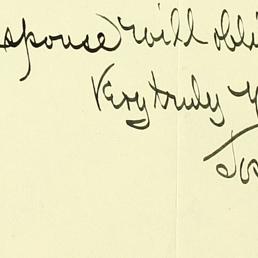 sponse will obli
Very truly y
Jos